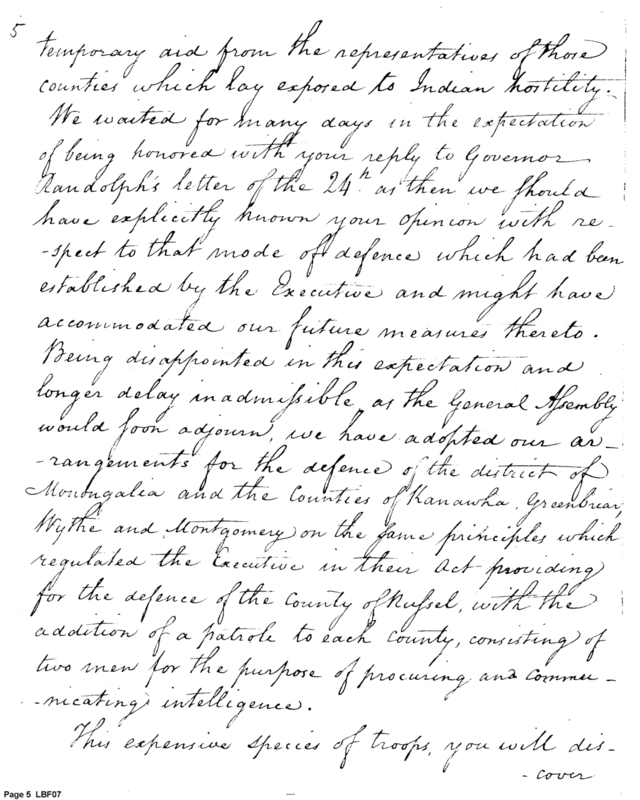 5
temporary aid from the representatives of those
counties which lay exposed to Indian hostility.
We waited for many days in the expectation
of being honored with your reply to Governor
Randolph's letter of the 24th as then we should
have explicitly known your opinion with re-
-spect to that mode of defence which had been
established by the Executive and might have
accommodated our future measures thereto.
Being disappointed in this expectation and
longer delay inadmissible as the General Assembly
would soon adjourn, we have adopted our ar-
-rangements for the defence of the district of
Monongalia and the Counties of Kanawha, Greenbriar,
Wythe and Montgomery on the same principles which
regulated the Executive in their Act providing
for the defence of the County of Russel, with the
addition of a patrole to each County, consisting of
two men for the purpose of procuring and commu-
-nicating intelligence.
This expensive species of troops, you will dis-
-cover
Page 5 LBF07